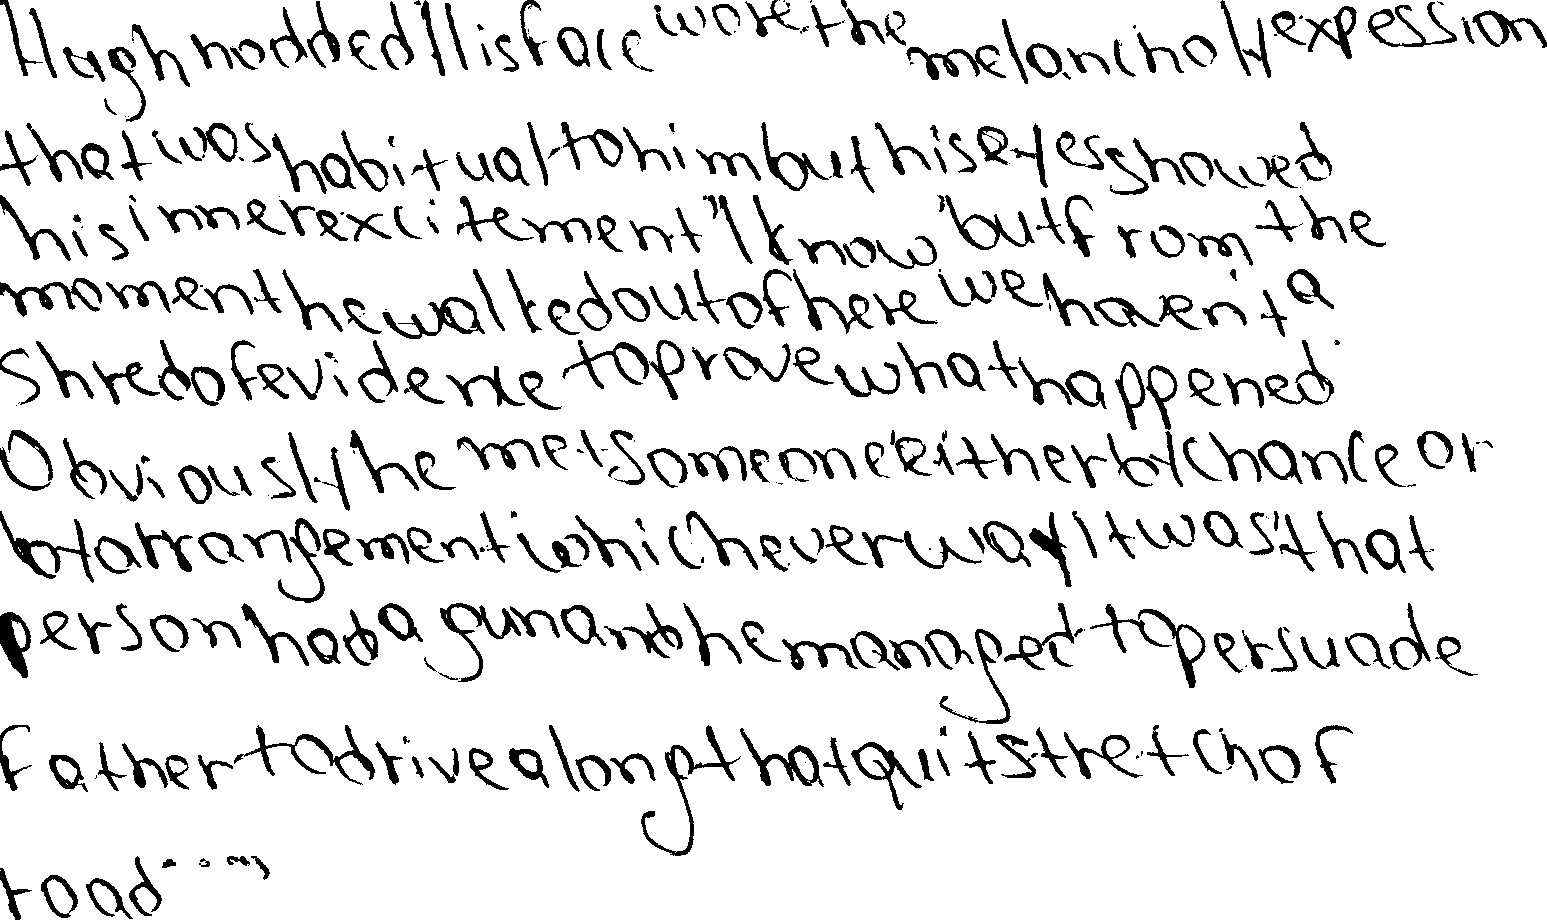 Hugh nodded His face wore the melancholy expession
that was habitual to him but his eyes showed
his inner excitement "I know "but from the
moment he walked out of here we haven't a
Shred of evidence to prove what happened.
Obviously he met someone either by chance or
by arrangement whichever way it was that
person had a gun and he managed to persuade
father to drive along that quit stretch of
road ...."